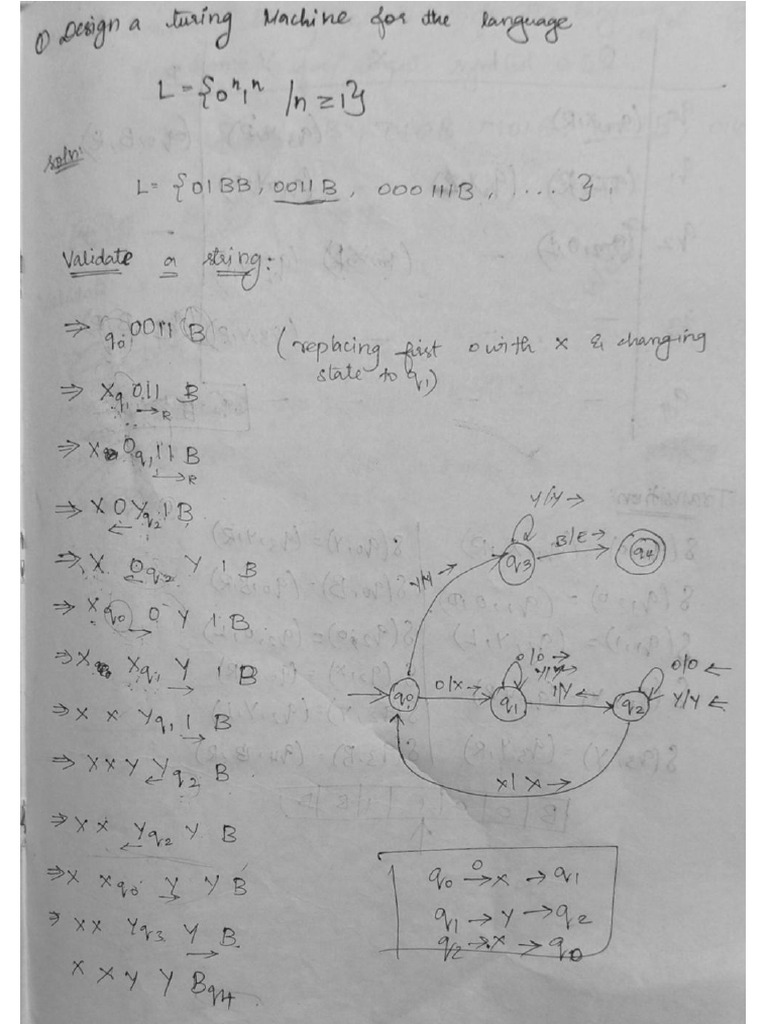 ① Design a turing Machine for the language
L = {0ⁿ1ⁿ / n ≥ 1}
soln:
L = {01BB, 0011B, 000111B, ....}.
Validate a string:
⇒ q0 0011 B (replacing first 0 with X & changing
state to q1)
⇒ X q1 011 B
→ R
⇒ X 0 q1 11 B
→ R
⇒ X 0 Y q2 1 B
←
⇒ X 0 q2 Y 1 B
←
⇒ X q0 0 Y 1 B
→
⇒ X X q1 Y 1 B
→
⇒ X X Y q1 1 B
→
⇒ X X Y Y q2 B
←
⇒ X X Y q2 Y B
←
⇒ X X q0 Y Y B
→
⇒ X X Y q3 Y B
→
X X Y Y B q4
Y/Y →
q3
B/B →
q4
Y/Y →
0/0 →
Y/Y →
0/0 ←
Y/Y ←
q0
0/X →
q1
1/Y ←
q2
X/X →
q0 0→ X → q1
q1 → Y → q2
q2 → X → q0